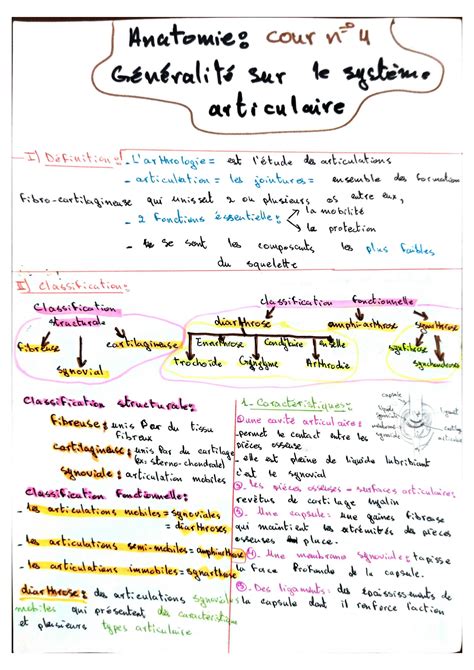 Anatomie: cour n° 4
Généralité sur le système
articulaire
I) Définition:
- L'arthrologie = est l'étude des articulations
- articulation = les jointures = ensemble des formation
fibro-cartilagineuse qui unissent 2 ou plusieurs os entre eux,
- 2 Fonctions éssentielle:
la mobilité
la protection
- se sont les composants les plus faibles
du squelette
II) Classification:
Classification
structurale
fibreuse
synovial
cartilagineuse
classification fonctionnelle
diarthrose
amphi-arthrose
synarthrose
Enarthrose
Condylaire
selle
Trochoïde
Ginglyme
Arthrodie
synfibrose
synchondrose
Classification structurale:
fibreuse: unis Par du tissu
Fibreux
cartilagineuse: unis par du cartilage
(ex: sterno-chondrale)
synoviale: articulation mobiles
Classification Fonctionnelle:
- les articulations mobiles = synoviales
= diarthroses
- les articulations semi-mobiles = amphiarthrose
- les articulations immobiles = synarthrose
diarthrose: des articulations synoviales
mobiles qui présentent des caractéristiques
et plusieurs types articulaire
1- Caractéristiques:
① une cavité articulaire:
permet le contact entre les
pièces osseuse
- elle est pleine de liquide lubrifiant
c'est le synovial
②. les pièces osseuses = surfaces articulaire:
revêtus de cartilage hyalin
③. Une capsule: une gaines fibreuse
qui maintient les extrémités des pièces
osseuses place.
④. Une membrane synoviale: tapisse
la face Profonde de la capsule.
⑤. Des ligaments: des épaississements de
la capsule dont il renforce l'action
capsule
membrane
synoviale
ligament
articulaire